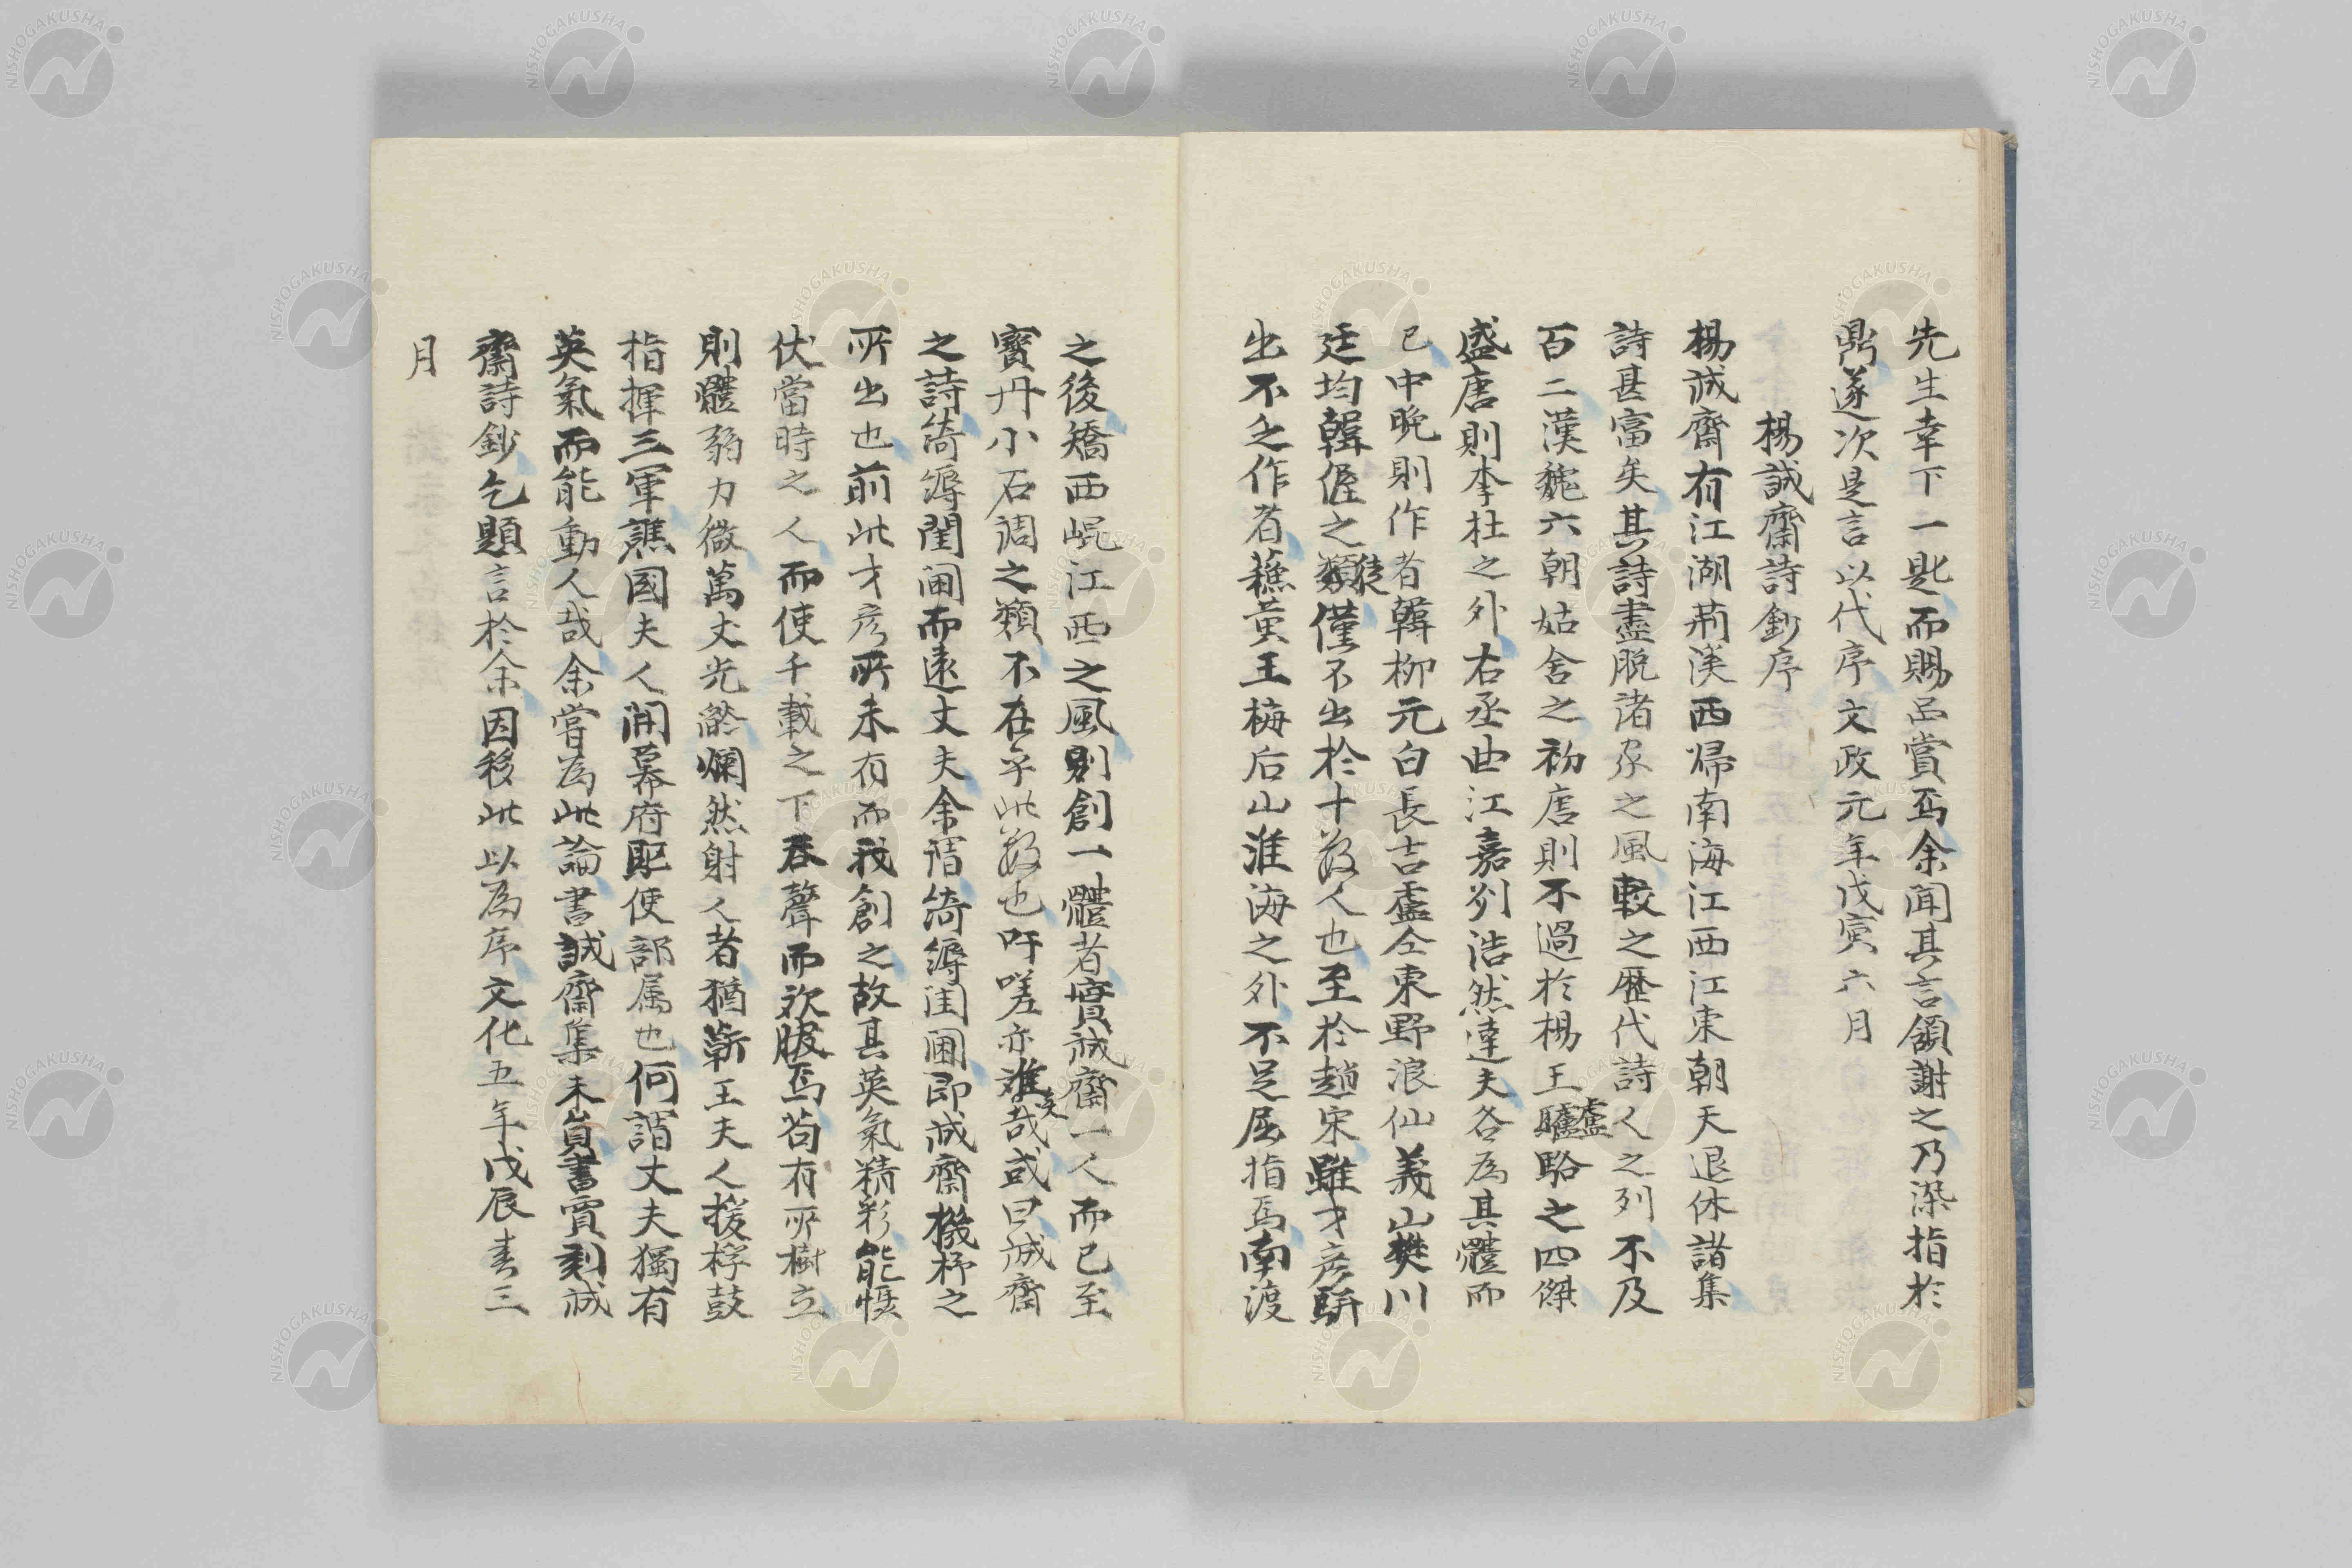 先生幸下一匙而賜品賞焉余聞其言領謝之乃染指於
鼎遂次是言以代序文政元年戊寅六月
楊誠齋詩鈔序
楊誠齋有江湖荊溪西歸南海江西江東朝天退休諸集
詩甚富矣其詩盡脱諸家之風較之歴代詩人之列不及
百二漢魏六朝姑舍之初唐則不過於楊王驢盧駱之四傑
盛唐則李杜之外右丞曲江嘉州浩然達夫各為其體而
已中晩則作者韓柳元白長吉盧仝東野浪仙義山樊川
廷均韓偓之類徒僅不出於十數人也至於趙宋雖才彦駢
出不乏作者蘓黄王梅后山淮海之外不足屈指焉南渡
之後矯西崐江西之風別創一體者實誠齋一人而已至
寳丹小石調之類不在乎此數也吁嗟亦誰哉矣或曰誠齋
之詩綺縟閨閫而遠丈夫余謂綺縟閨閫即誠齋機杼之
所出也前此才彦所未有而我創之故其英氣精彩能慑
伏當時之人而使千載之下吞聲而歛䏜焉苟有所樹立
則體弱力微萬丈光燄爛然射人者猶蘄王夫人援桴鼓
指揮三軍譙國夫人開幕府駆使部属也何謂丈夫獨有
英氣而能動人哉余嘗為此論書誠齋集末貟書賈刻誠
齋詩鈔乞題言於余因移此以為序文化五年戊辰春三
月
NISHOGAKUSHA